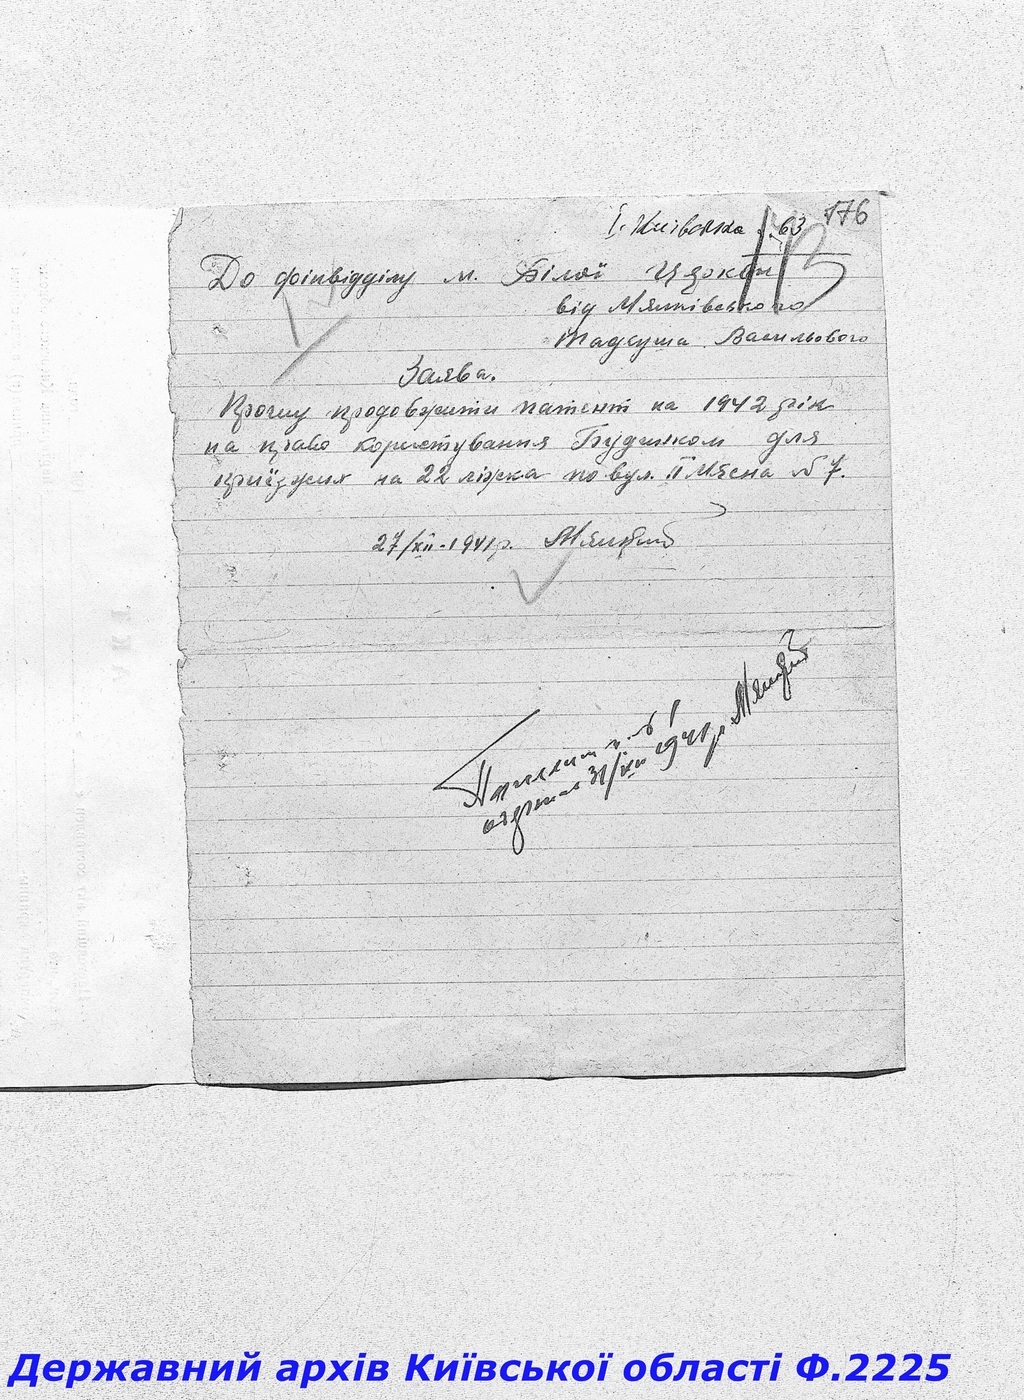 176
І. Київська 63
До фінвідділу м. Білої Церкви
від М'ялківського
Тадеуша Васильового
Заява.
Прошу продовжити патент на 1942 рік
на право користування Будинком для
приїзжих на 22 ліжка по вул. ІІ № 7.
27/XII-1941 р.
Патент № 1
одержав 31/XII 1941 р.
Державний архів Київської області Ф.2225